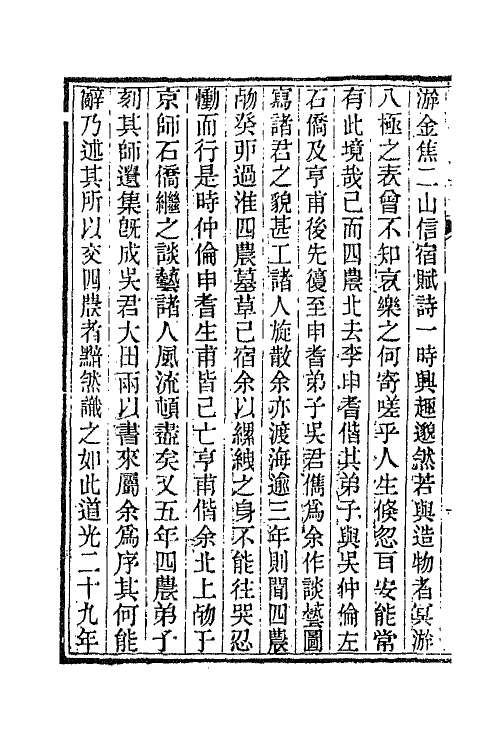 游金焦二山信宿賦詩一時興趣邈然若與造物者冥游
八極之表曾不知哀樂之何寄嗟乎人生倏忽百變能常
有此境哉已而四農北去李申耆偕其弟子與吳仲倫左
石僑及亨甫後先復至申耆弟子吳君儁爲余作談藝圖
寫諸君之貌甚工諸人旋散余亦渡海逾三年則聞四農
歾癸丣過淮四農墓草已宿余以縲絏之身不能往哭忍
慟而行是時仲倫申耆生甫皆已亡亨甫偕余北上歾于
京師石僑繼之談藝諸人風流頓盡矣又五年四農弟子
刻其師遺集旣成吳君大田雨以書來屬余爲序其何能
辭乃述其所以交四農者黯然識之如此道光二十九年